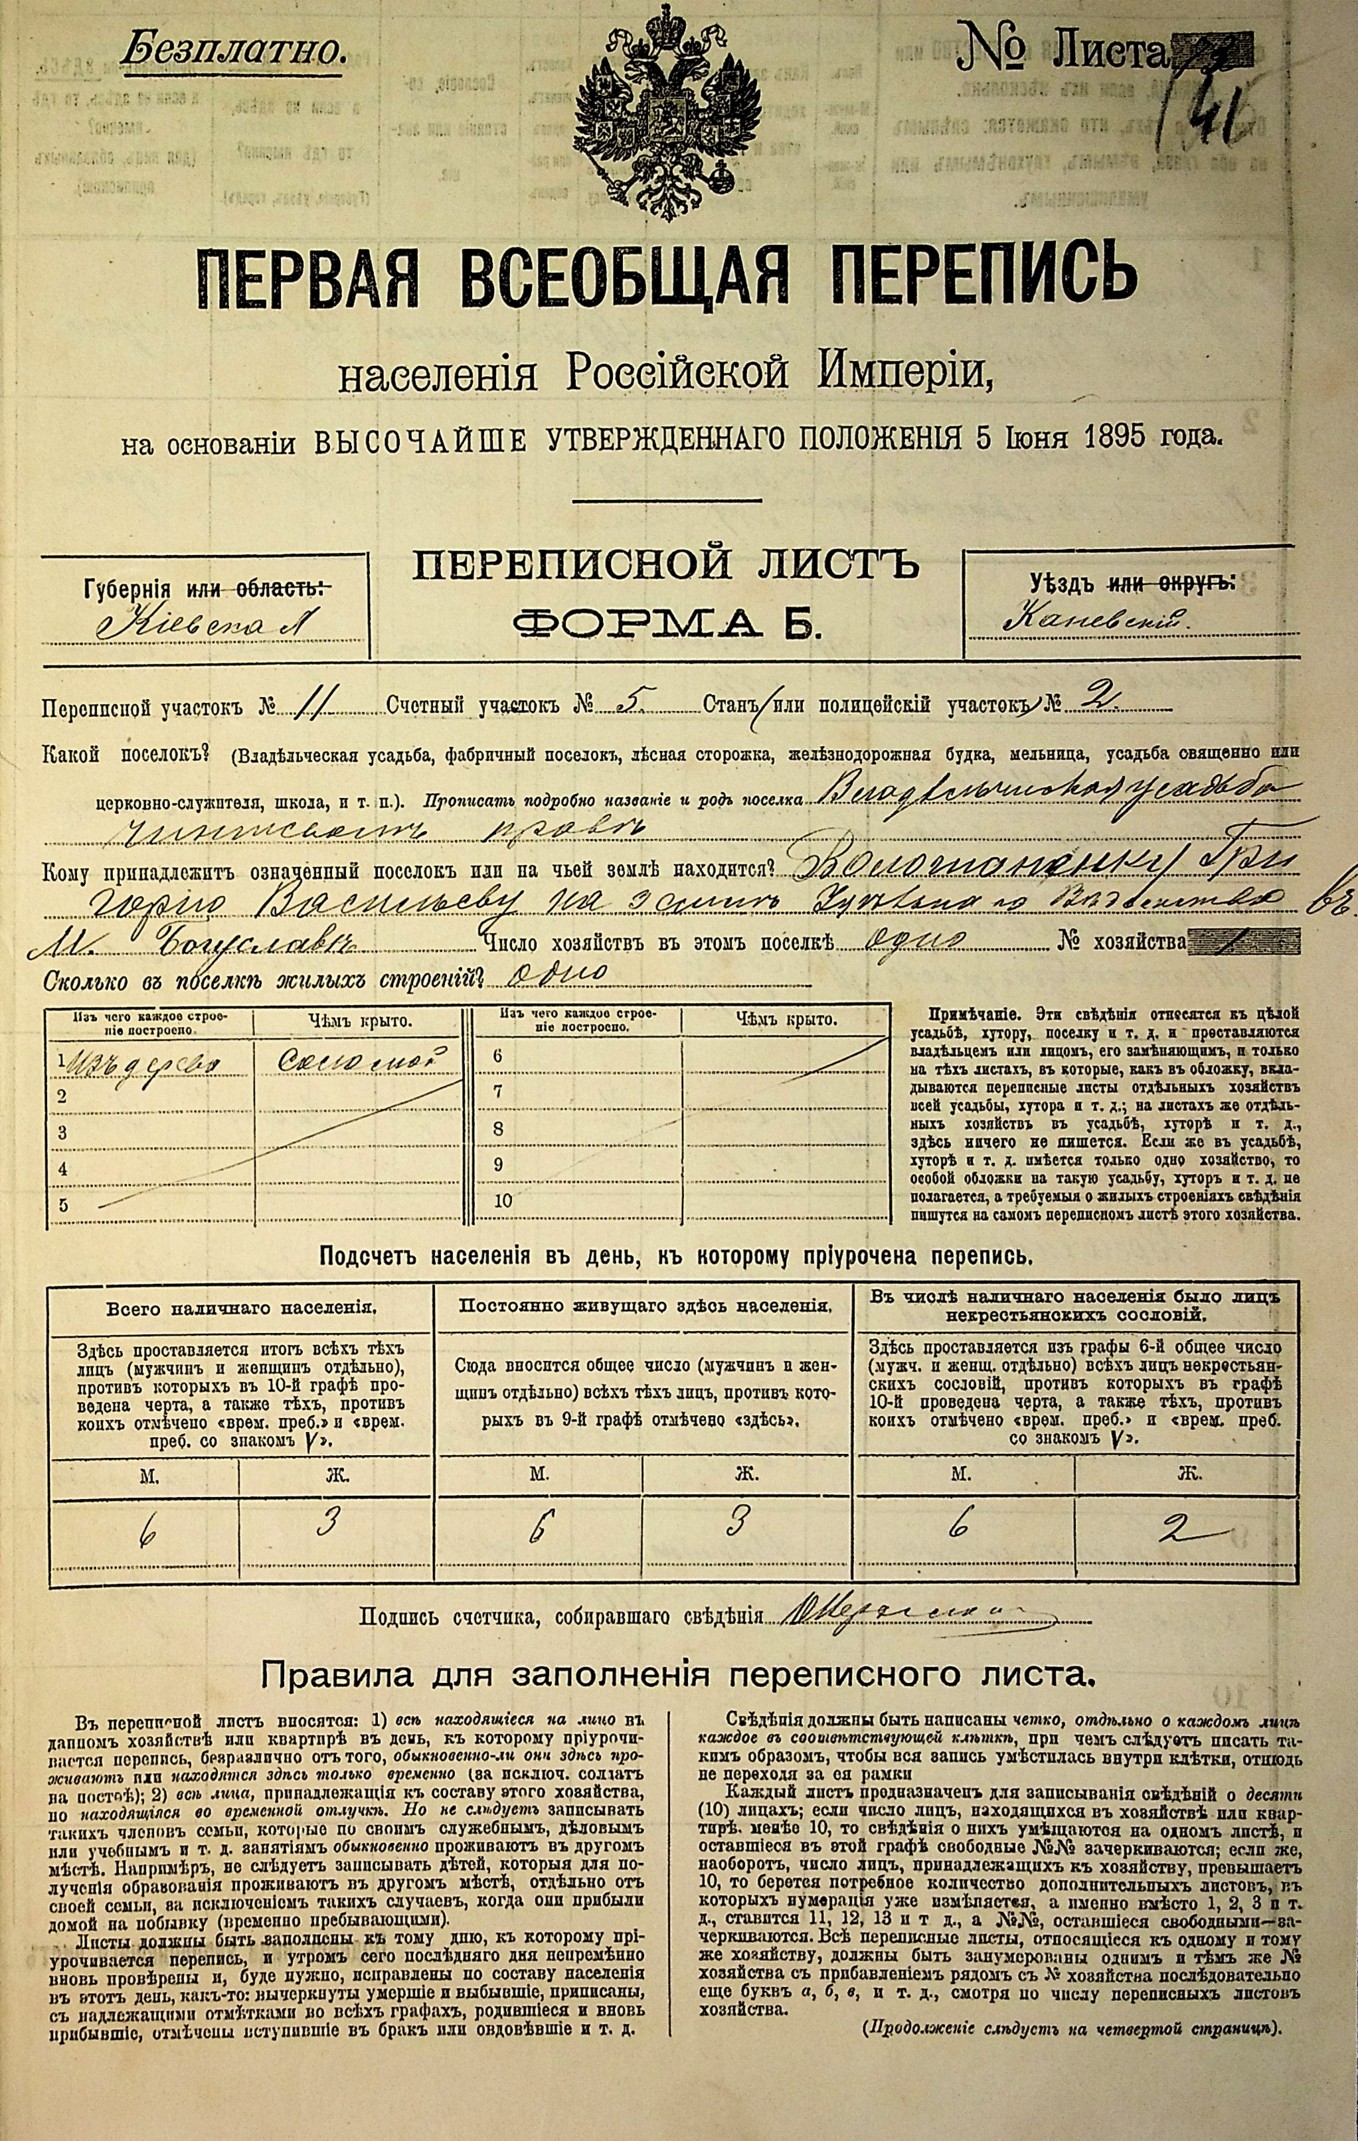 Безплатно.
№ Листа
41
ПЕРВАЯ ВСЕОБЩАЯ ПЕРЕПИСЬ
населенія Россійской Имперіи,
на основаніи ВЫСОЧАЙШЕ УТВЕРЖДЕННАГО ПОЛОЖЕНІЯ 5 Іюня 1895 года.
ПЕРЕПИСНОЙ ЛИСТЪ
ФОРМА Б.
Губернія или область:
Кіевская
Уѣздъ или округъ:
Каневскій.
Переписной участокъ № 11 Счетный участокъ № 5. Станъ (или полицейскій участокъ) № 2.
Какой поселокъ? (Владѣльческая усадьба, фабричный поселокъ, лѣсная сторожка, желѣзнодорожная будка, мельница, усадьба священно или
церковно-служителя, школа, и т. п.). Прописать подробно названіе и родъ поселка Владѣльческая усадьба
чиншевомъ правѣ
Кому принадлежитъ означенный поселокъ или на чьей землѣ находится? Волошаненку Гри
горію Васильеву на землѣ Удѣльнаго Вѣдомства въ
М. Богуславѣ Число хозяйствъ въ этомъ поселкѣ одно № хозяйства 1
Сколько въ поселкѣ жилыхъ строеній? одно
Изъ чего каждое строеніе построено. Чѣмъ крыто. Изъ чего каждое строеніе построено. Чѣмъ крыто.
1 Изъ дерева соломой 6
2 7
3 8
4 9
5 10
Примѣчаніе. Эти свѣдѣнія относятся къ цѣлой
усадьбѣ, хутору, поселку и т. д. и проставляются
владѣльцемъ или лицомъ, его замѣняющимъ, и только
на тѣхъ листахъ, въ которые, какъ въ обложку, вкла-
дываются переписные листы отдѣльныхъ хозяйствъ
всей усадьбы, хутора и т. д.; на листахъ же отдѣль-
ныхъ хозяйствъ въ усадьбѣ, хуторѣ и т. д.,
здѣсь ничего не пишется. Если же въ усадьбѣ,
хуторѣ и т. д. имѣется только одно хозяйство, то
особой обложки на такую усадьбу, хуторъ и т. д. не
полагается, а требуемыя о жилыхъ строеніяхъ свѣдѣнія
пишутся на самомъ переписномъ листѣ этого хозяйства.
Подсчетъ населенія въ день, къ которому пріурочена перепись.
Всего наличнаго населенія.
Здѣсь проставляется итогъ всѣхъ тѣхъ
лицъ (мужчинъ и женщинъ отдѣльно),
противъ которыхъ въ 10-й графѣ про-
ведена черта, а также тѣхъ, противъ
коихъ отмѣчено «врем. преб.» и «врем.
преб. со знакомъ V».
Постоянно живущаго здѣсь населенія.
Сюда вносится общее число (мужчинъ и жен-
щинъ отдѣльно) всѣхъ тѣхъ лицъ, противъ кото-
рыхъ въ 9-й графѣ отмѣчено «здѣсь».
Въ числѣ наличнаго населенія было лицъ
некрестьянскихъ сословій.
Здѣсь проставляется изъ графы 6-й общее число
(мужч. и женщ. отдѣльно) всѣхъ лицъ некрестьян-
скихъ сословій, противъ которыхъ въ графѣ
10-й проведена черта, а также тѣхъ, противъ
коихъ отмѣчено «врем. преб.» и «врем. преб.
со знакомъ V».
М. Ж. М. Ж. М. Ж.
6 3 6 3 6 2
Подпись счетчика, собиравшаго свѣдѣнія
Правила для заполненія переписного листа.
Въ переписной листъ вносятся: 1) всѣ находящіеся на лицо въ
данномъ хозяйствѣ или квартирѣ въ день, къ которому пріурочи-
вается перепись, безразлично отъ того, обыкновенно-ли они здѣсь про-
живаютъ или находятся здѣсь только временно (за исключ. солдатъ
на постоѣ); 2) всѣ лица, принадлежащія къ составу этого хозяйства,
но находящіяся во временной отлучкѣ. Но не слѣдуетъ записывать
такихъ членовъ семьи, которые по своимъ служебнымъ, дѣловымъ
или учебнымъ и т. д. занятіямъ обыкновенно проживаютъ въ другомъ
мѣстѣ. Напримѣръ, не слѣдуетъ записывать дѣтей, которыя для по-
лученія образованія проживаютъ въ другомъ мѣстѣ, отдѣльно отъ
своей семьи, за исключеніемъ такихъ случаевъ, когда они прибыли
домой на побывку (временно пребывающими).
Листы должны быть заполнены къ тому дню, къ которому прі-
урочивается перепись, и утромъ сего послѣдняго дня непремѣнно
вновь провѣрены и, буде нужно, исправлены по составу населенія
въ этотъ день, какъ-то: вычеркнуты умершіе и выбывшіе, приписаны,
съ надлежащими отмѣтками во всѣхъ графахъ, родившіеся и вновь
прибывшіе, отмѣчены вступившіе въ бракъ или овдовѣвшіе и т. д.
Свѣдѣнія должны быть написаны четко, отдѣльно о каждомъ лицѣ
каждое въ соотвѣтствующей клѣткѣ, при чемъ слѣдуетъ писать та-
кимъ образомъ, чтобы вся запись умѣстилась внутри клѣтки, отнюдь
не переходя за ея рамки
Каждый листъ предназначенъ для записыванія свѣдѣній о десяти
(10) лицахъ; если число лицъ, находящихся въ хозяйствѣ или квар-
тирѣ. менѣе 10, то свѣдѣнія о нихъ умѣщаются на одномъ листѣ, и
оставшіеся въ этой графѣ свободные №№ зачеркиваются; если же,
наоборотъ, число лицъ, принадлежащихъ къ хозяйству, превышаетъ
10, то берется потребное количество дополнительныхъ листовъ, въ
которыхъ нумерація уже измѣняется, а именно вмѣсто 1, 2, 3 и т.
д., ставится 11, 12, 13 и т д., а №№, оставшіеся свободными—за-
черкиваются. Всѣ переписные листы, относящіеся къ одному и тому
же хозяйству, должны быть занумерованы однимъ и тѣмъ же №
хозяйства съ прибавленіемъ рядомъ съ № хозяйства послѣдовательно
еще буквъ а, б, в, и т. д., смотря по числу переписныхъ листовъ
хозяйства.
(Продолженіе слѣдуетъ на четвертой страницѣ).